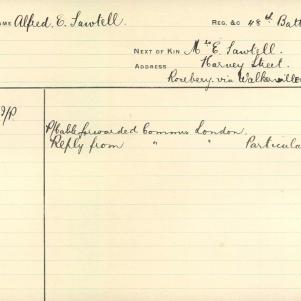 NAME Alfred. E. Sawtell. REG. &C 48th Batt
NEXT OF KIN Mrs E. Sawtell.
ADDRESS Harvey Street.
Rosebery. via Walkerville
P/Cable forwarded Commns London.
Reply from " " Particula